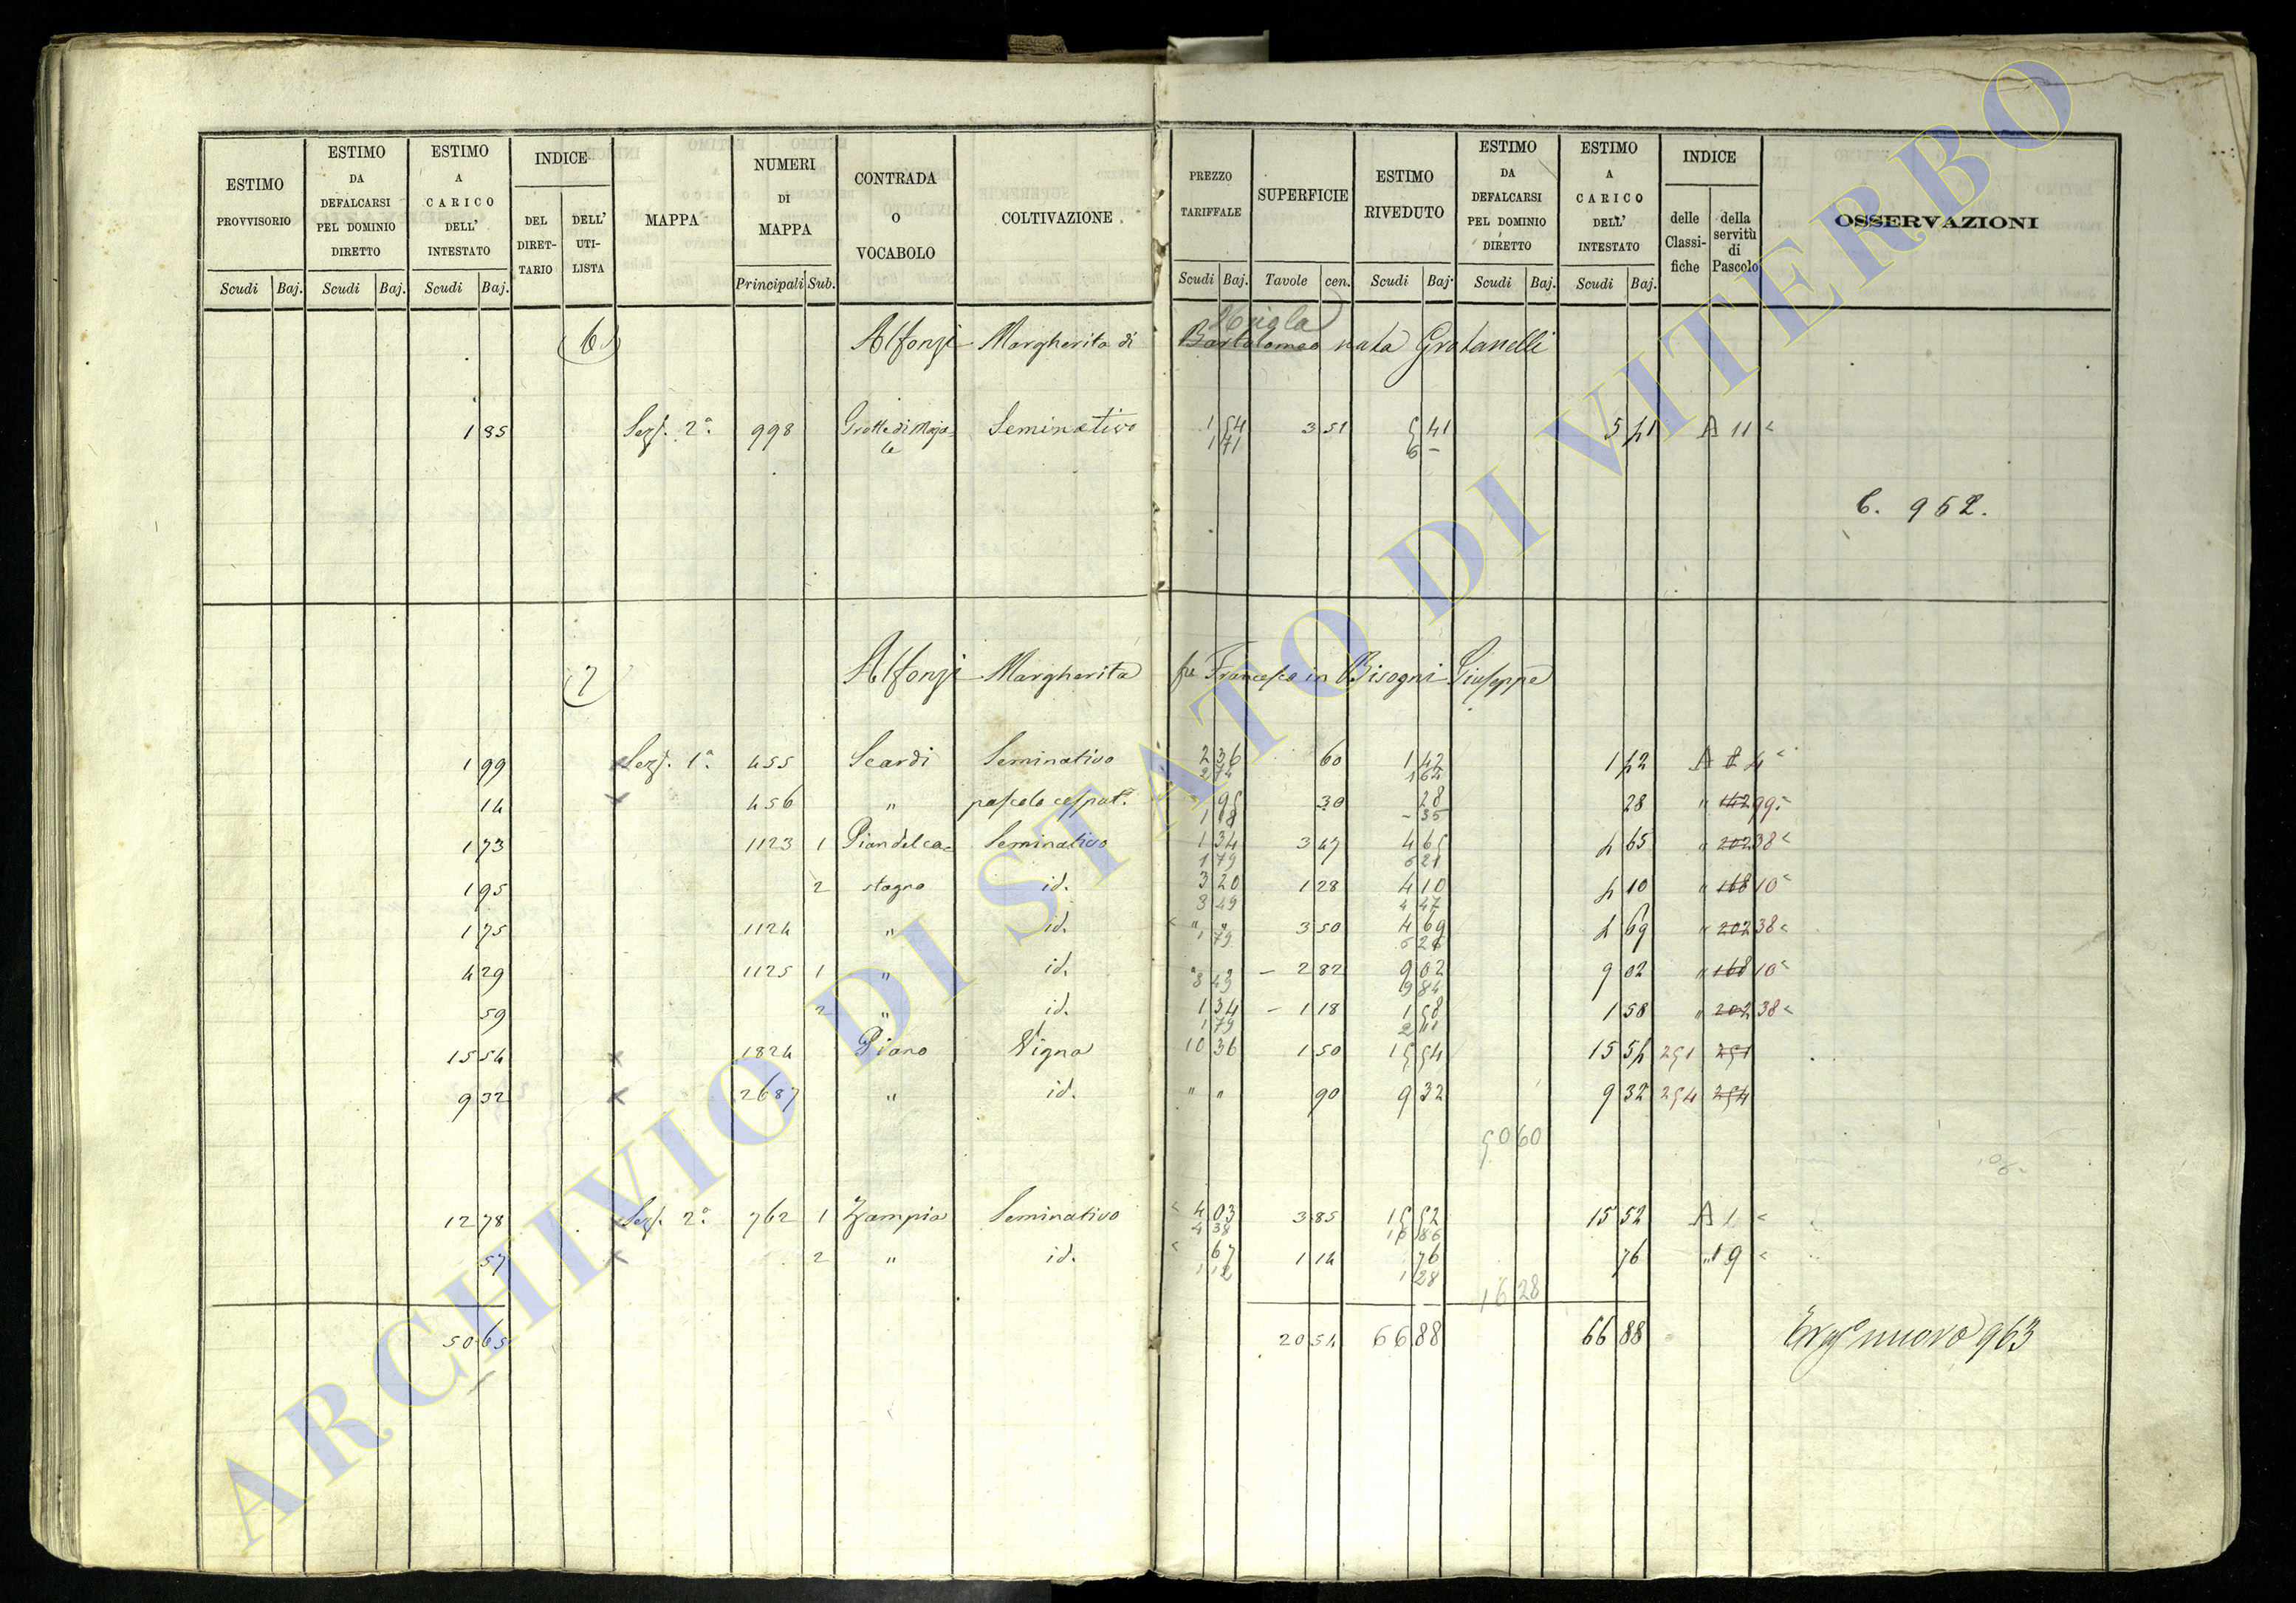 ESTIMO PROVVISORIO | ESTIMO DA DEFALCARSI PEL DOMINIO DIRETTO | ESTIMO A CARICO DELL' INTESTATO | INDICE | MAPPA | NUMERI DI MAPPA | CONTRADA O VOCABOLO | COLTIVAZIONE | PREZZO TARIFFALE | SUPERFICIE | ESTIMO RIVEDUTO | ESTIMO DA DEFALCARSI PEL DOMINIO DIRETTO | ESTIMO A CARICO DELL' INTESTATO | INDICE | OSSERVAZIONI
DEL DIRET-TARIO | DELL' UTI-LISTA | delle Classi-fiche | della servitù di Pascolo
Scudi | Baj. | Scudi | Baj. | Scudi | Baj. | Principali | Sub. | Scudi | Baj. | Tavole | cen. | Scudi | Baj. | Scudi | Baj. | Scudi | Baj.
6 Alfonzi Margherita di Bartolomeo nata Grotanelli
1 85 Sez. 2a. 998 Seminativo 1 54 3 51 5 41 5 41 A 11
1 71 6 –
C. 952.
7 Alfonzi Margherita fu Francesco in Bisogni Giuseppe
1 99 Sez. 1a. 455 Scardi Seminativo 2 36 60 1 42 1 42 A 4
2 74 1 64
14 456 " pascolo cespat. 95 30 28 28 " 142 99
1 18 – 35
1 73 1123 1 Pian del ca= Seminativo 1 34 3 47 4 65 4 65 " 202 38
1 79 6 21
1 95 2 stagno id. 3 20 1 28 4 10 4 10 " 168 10
3 49 4 47
1 75 1124 " id. " " 3 50 4 69 4 69 " 202 38
1 79 6 26
4 29 1125 1 " id. " " 2 82 9 02 9 02 " 168 10
3 49 9 84
59 2 " id. 1 34 1 18 1 58 1 58 " 202 38
1 79 2 11
15 54 1824 Piano Vigna 10 36 1 50 15 54 15 54 251 251
9 32 2687 " id. " " 90 9 32 9 32 254 254
50 60
12 78 Sez. 2a. 762 1 Zampia Seminativo 4 03 3 85 15 52 15 52 A 1
4 38 16 86
57 2 " id. 67 1 14 76 76 " 19
1 12 1 28
16 28
50 65 20 54 66 88 66 88 nuovo 963
ARCHIVIO DI STATO DI VITERBO